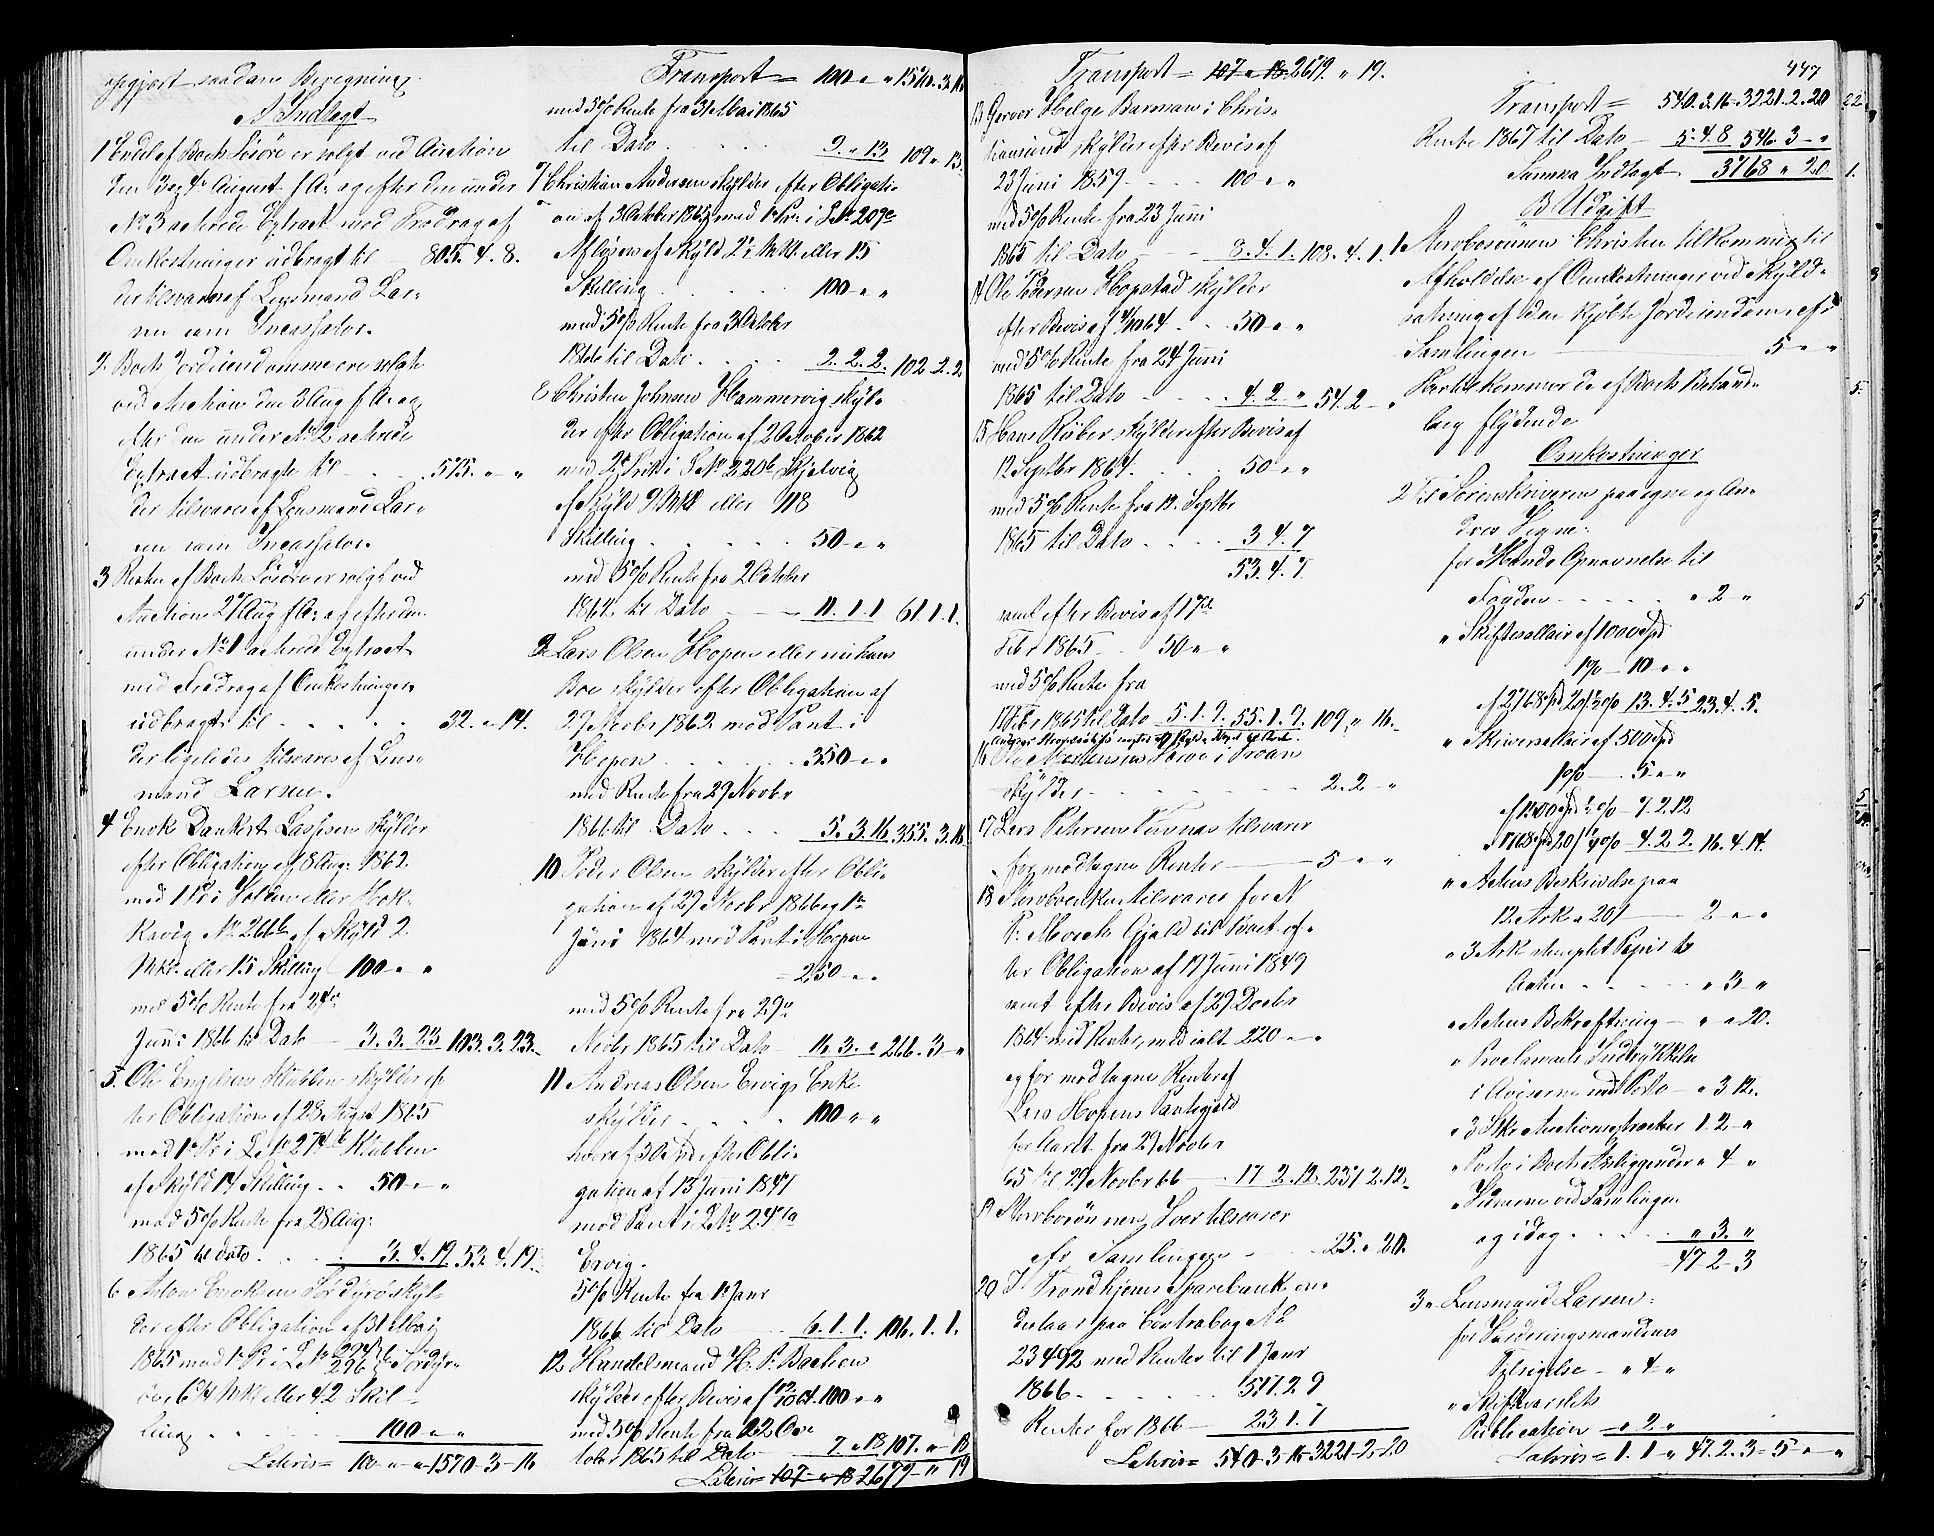 opgjort saadan Beregning
A Indtægt
1 Endel af Boets Løsøre er solgt ved Auction
den 3 og 4 August f. A. og efter den under
No 3 acterede Extract med Fradrag af
Omkostninger udbragt til 805. 4. 8.
der tilsvares af Lensmand Lar-
sen som Incassator.
2. Boets Jordeiendomme ere solgte
ved Auction den 3 Aug f. A. og
efter den under No 2 acterede
Extract udbragte til 575. " "
der tilsvares af Lensmand Lar-
sen som Incassator.
3 Resten af Boets Løsøre er solgt ved
Auction 27 Aug f. A. og efter den
under No 1 acterede Extract
med Fradrag af Omkostninger
udbragt til 32. " 14.
der ligeledes tilsvares af Lens-
mand Larsen.
4 Enok Dankert Lassesen skylder
efter Obligation af 8 Aug: 1862
med 1 Pr i
No 266 b af Skyld 2.
Mkr. eller 15 Skilling 100 " "
med 5% Rente fra 24de
Juni 1866 til Dato 3. 3. 23 103. 3. 23.
5. Ole Engelsen Klubben skylder ef-
ter Obligation af 28 August 1865
med 1ste Pr i L No 274 b Klubben
af Skyld 14 Skilling 50 " "
med 5% Rente fra 28 Aug:
1865 til dato 3. 4. 19. 53. 4. 19.
6 Anton Enoksen Sørdyrø skyl-
der efter Obligation af 31 Mai
1865 med 1ste Pr i L No 294 296 b Sørdyr-
Mk eller 42 Skil-
ling 100 " "
Latris = 100 " " 1570-3-16
Transport = 100 " " 1570. 3. 16
med 5% Rente fra 31 Mai 1865
til Dato 9. " 13 109 " 13.
7 Christian Andersen skylder efter Obligati-
on af 3 October 1865 med 1ste Pr. i L No 209
Afløsen af Skyld 2 Mkl. eller 15
Skilling 100 " "
med 5% Rente fra 3 October
1866 til Dato 2. 2. 2. 102. 2. 2.
8 Christen Johnsen Hammervig skyl-
der efter Obligation af 2 October 1862
med 2d Prt i L No 220 b Hjelvig
af Skyld 2 Mkl eller 118
Skilling 50 " "
med 5% Rente fra 2 October
1862 til Dato 11. 1. 1 61. 1. 1.
9 Lars Olsen Hopen eller nu hans
Boe skylder efter Obligation af
29 Novbr 1862 med Pant i
Hopen 350 " "
med Rente fra 29 Novbr
1866 til Dato 5. 3. 16. 355. 3. 16
10 Peder Olsen skylder efter Obli-
gation af 29 Novbr 1866 og 1ste
Juni 1864 med Pant i Hopen
250 " "
med 5% Rente fra 29de
Novbr 1865 til Dato 16. 3. " 266. 3 "
11 Andreas Olsen Ervigs Enke
skylder 100 " "
heraf 30 Spd efter Obli-
gation af 13 Juni 1847
med Pant i L No 247 a
Ervig.
5% Rente fra 1ste Janr
1866 til Dato 6. 1. 1. 106. 1. 1.
12 Handelsmand H. P. Backen
skylder efter Bevis af 100 " "
med 5% Rente fra 22 Octo-
tober 1865 til Dato 7 " 18 107. " 18
Latris = 107 " 18 2679 " 19
Transport = 107 " 18 2679 " 19.
13 Garver Helge Barman i Chris-
tiansund skylder efter Bevis af
23 Juni 1859 100 " "
med 5% Rente fra 23 Juni
1865 til Dato 8. 4. 1. 108. 4. 1.
14 Ole Pedersen Hopstad skylder
efter Bevis af 1/10 64 50 " "
med 5% Rente fra 24 Juni
1865 til Dato 4. 2 " 54. 2 "
15 Hans Røber skylder efter Bevis af
12 Septbr 1864 50 " "
med 5% Rente fra 12. Septbr
1865 til Dato 3 4. 7
53. 4. 7.
samt efter Bevis af 17de
Febr 1865 50 " "
med 5% Rente fra
17 Febr 1865 til Dato 5. 1. 9. 55. 1. 9. 109. " 16.
16 Ole Mortensen i Froan
skylder 2. 2 "
17 Lars Petersen Tuvnæs tilsvarer
for modtagne Renter 5 " "
18 Stervboenken tilsvarer for N
P. Morch Gjeld til Boet ef-
ter Obligation af 19 Juni 1849
samt efter Bevis af 29 Decbr
1864 med Renter, med ialt 220 " "
og for modtagne Renter af
Lars Hopens Pantegjeld
for Aaret fra 29 Novbr
65 til 29 Novbr 66 17 2. 12. 237. 2. 12.
19 Stervbosønnen Iver tilsvarer
efr Samlingen 25. " 20.
20 I Trondhjems Sparebank in-
destaar paa Contrabog No
23492 med Renter til 1 Janr
1866 517. 2 9
Renter for 1866 23 1. 7
Latris = 540-3-16-3221-2-20
447
Transport = 540. 3. 16-3221. 2. 20
Rente 1867 til Dato 5. 4. 8 546. 3 "
Summa Indtægt 3768 " 20
B Udgift
1 Stervbosønnen Christen tilkommer til
Afholdelse af Omkostninger ved Skyld-
sætning af den kjøbte Jordeiendom efr
Samlingen 5 " "
Herhos kommer de af Boets Behand-
ling flydende
Omkostninger
2 Til Sorenskriveren paa egne og An-
dres Vegne:
for Mænds Opnævnelse til
Fogden " 2 "
" Skiftesallair af 1000 Spd
1% 10 " "
af 2768 Spd 20 ß ½% 13. 4. 5 23. 4. 5.
" Skriversallair af 500 Spd
1% 5 " "
af 1500 Spd ½% 7. 2. 12
af 1768 Spd 20 ß ¼% 4. 2 2. 16. 4. 14.
" Actens Beskrivelse paa
12 Ark a 20 ß 2 " "
" 3 Ark stemplet Papir til
Acten " 3 "
" Actens Bekræftning " " 20.
" Proclamets Indrykkelse
i Aviserne med Porto " 3 12.
" 3 Skr Auctionsextracter 1. 2 "
" Porto i Boets Anliggender " 4 "
" Vidnerne ved Samlingen
og idag " 3. "
47 2 3
3. Lensmand Larsen:
for Vurderingsmændenes
Tilsigelse " 4 "
" Skiftevarslets
Publication " 2 "
Latris = 1. 1 " 47. 2. 3 = 5 " "